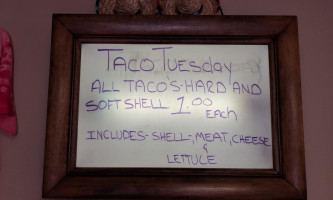 TACO TUESDAY
ALL TACO'S-HARD AND
SOFT SHELL 1.00
EACH
INCLUDES-SHELL-,MEAT,CHEESE
&
LETTUCE